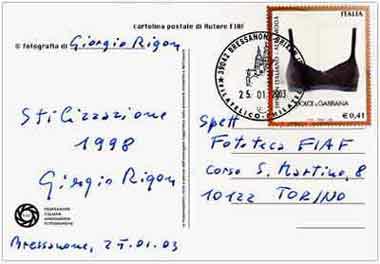 cartolina postale di Autore FIAF
© fotografia di Giorgio Rigon
Stilizzazione
1998
Giorgio Rigon
FEDERAZIONE
ITALIANA
ASSOCIAZIONI
FOTOGRAFICHE
Bressanone, 25.01.03
39042 BRESSANONE
25.01.2003
FILATELICO-PHILATELI
ITALIA
DOLCE & GABBANA
€ 0,41
Spett
Fototeca FIAF
Corso S. Martino, 8
10122 TORINO